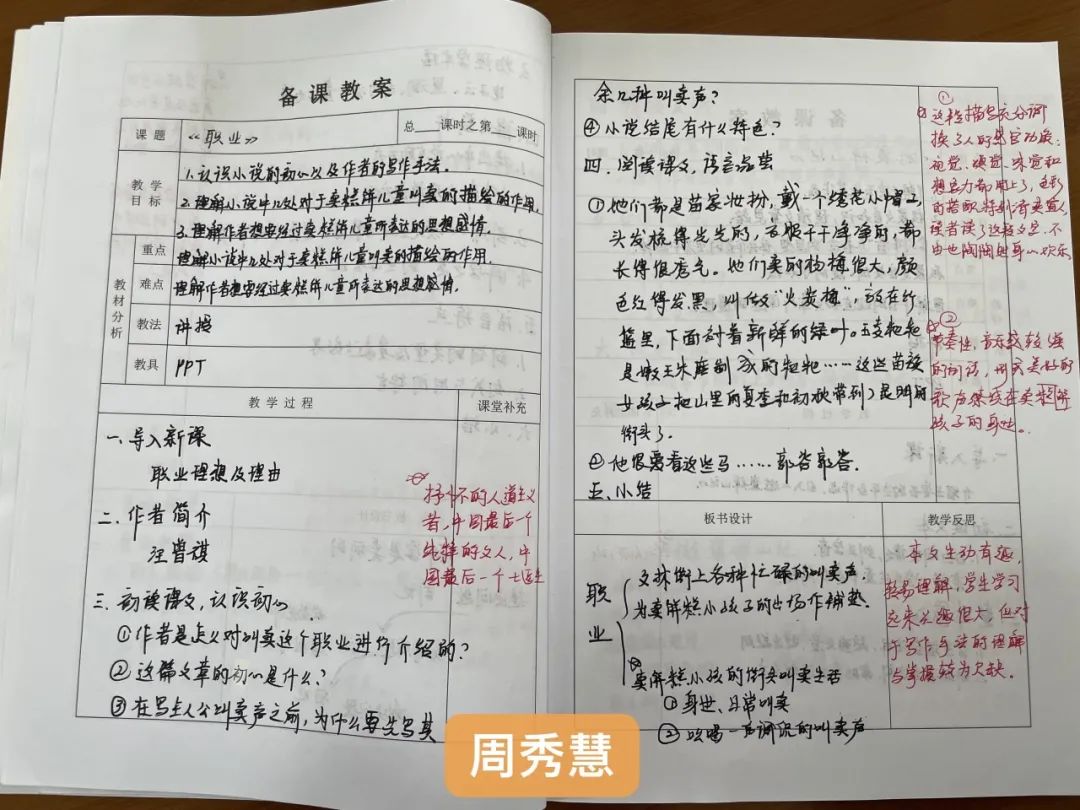 备课教案
课题 《职业》 总 课时之第 课时
教学目标
1.认识小说的初心以及作者的写作手法.
2.理解小说中几处对于卖糕饼儿童叫卖的描绘的作用.
3.理解作者想要经过卖糕饼儿童所表达的思想感情.
教材分析
重点 理解小说中几处对于卖糕饼儿童叫卖的描绘的作用.
难点 理解作者想要经过卖糕饼儿童所表达的思想感情.
教法 讲授
教具 PPT
教学过程 课堂补充
一.导入新课
职业理想及理由
二.作者简介
汪曾祺
抒情的人道主义
者,中国最后一个
纯粹的文人,中
国最后一个士大夫
三.初读课文,认识初心
①作者是怎么对叫卖这个职业进行介绍的?
②这篇文章的初心是什么?
③在写主人公叫卖声之前,为什么要先写其
余几种叫卖声?
④小说结尾有什么特色?
四.阅读课文,语言品尝
①他们都是苗家妆扮,戴一个绣花小帽子,
头发梳得光光的,衣服干干净净的,都
长得很秀气。他们卖的杨梅很大,颜
色红得发黑,叫做"火炭梅",放在竹
篮里,下面衬着新鲜的绿叶。玉麦粑粑
是嫩玉米磨制成的粑粑……这些苗族
女孩子把山里的夏季和初秋带到了昆明的
街头了.
②他很羡看这些马……郭答郭答.
五.小结
①
这段描写充分调
换了人的器官功能:
视觉、嗅觉、味觉和
想象力都用上了,色彩
的搭配特别清爽宜人,
读者读了这段文字,不
由也陶陶
②
节奏性,音乐感较强
的词语,用
孩子的身世。
板书设计 教学反思
职业
文林街上各种忙碌的叫卖声.
为卖饼糕小孩子的出场作铺垫.
卖饼糕小孩的街头叫卖生活
①身世、日常叫卖
②吆喝一声调侃的叫卖声
本文生动有趣,
较易理解,学生学习
起来兴趣很大,但对
于写作手法的理解
与掌握较为欠缺.
周秀慧